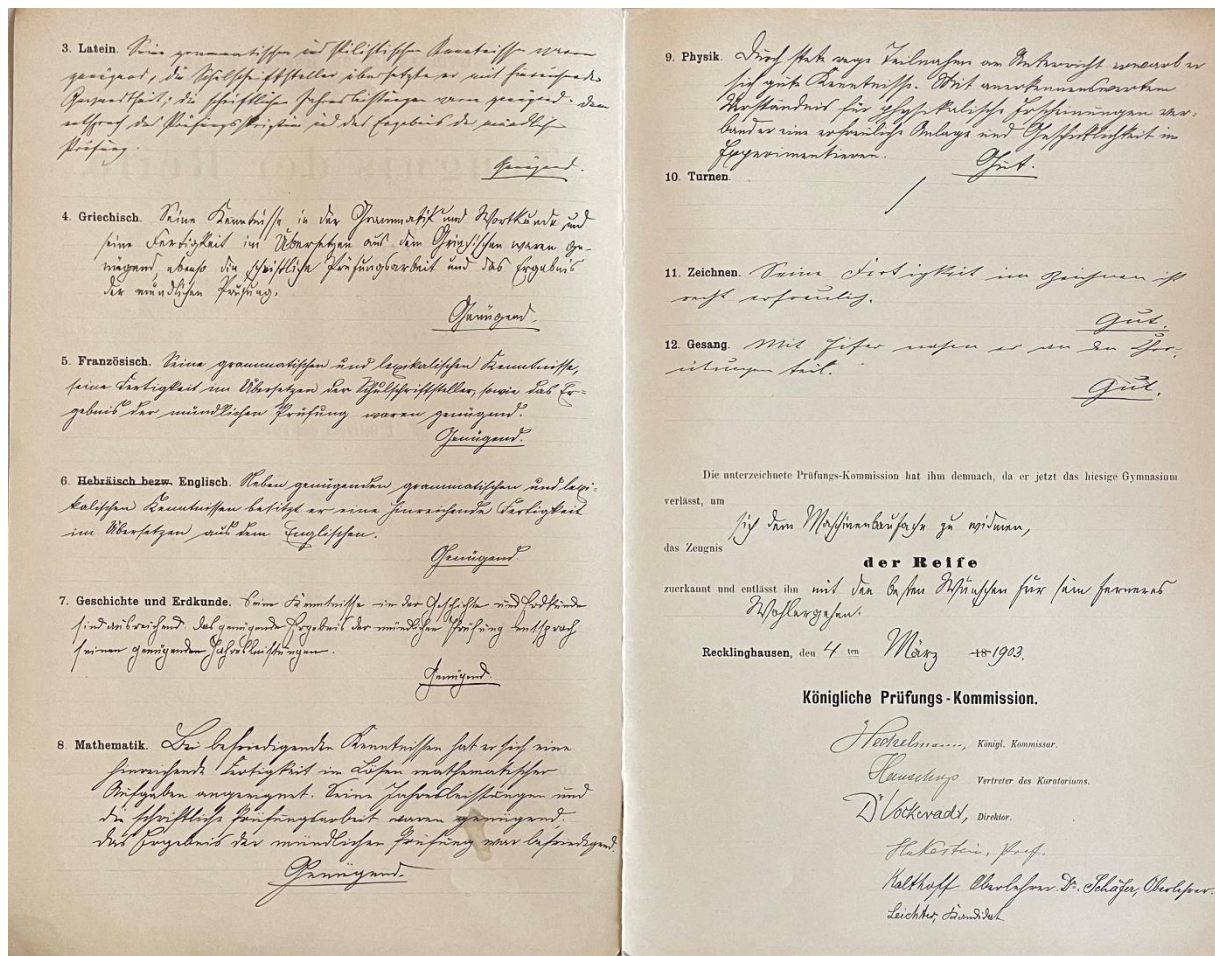 3. Latein. Seine grammatischen und stilistischen Kenntnisse waren
genügend; die Schulschriftsteller übersetzte er mit hinreichender
Gewandtheit; die schriftlichen Jahresleistungen waren genügend. Dem
entsprach das Prüfungsskriptum und das Ergebnis der mündlichen
Prüfung.
Genügend.
4. Griechisch. Seine Kenntnisse in der Grammatik und Wortkunde und
seine Fertigkeit im Übersetzen aus dem Griechischen waren ge-
nügend, ebenso die schriftliche Prüfungsarbeit und das Ergebnis
der mündlichen Prüfung.
Genügend.
5. Französisch. Seine grammatischen und lexikalischen Kenntnisse,
seine Fertigkeit im Übersetzen der Schulschriftsteller, sowie das Er-
gebnis der mündlichen Prüfung waren genügend.
Genügend.
6. Hebräisch bezw. Englisch. Neben genügenden grammatischen und lexi-
kalischen Kenntnissen besitzt er eine hinreichende Fertigkeit
im Übersetzen aus dem Englischen.
Genügend.
7. Geschichte und Erdkunde. Seine Kenntnisse in der Geschichte und Erdkunde
sind ausreichend. Das genügende Ergebnis der mündlichen Prüfung entsprach
seinen genügenden Jahresleistungen.
Genügend.
8. Mathematik. Bei befriedigenden Kenntnissen hat er sich eine
hinreichende Fertigkeit im Lösen mathematischer
Aufgaben angeeignet. Seine Jahresleistungen und
die schriftliche Prüfungsarbeit waren genügend.
Das Ergebnis der mündlichen Prüfung war befriedigend.
Genügend.
9. Physik. Durch stete rege Teilnahme am Unterricht erwarb er
sich gute Kenntnisse. Mit anerkennenswertem
Verständnis für physikalische Erscheinungen ver-
band er eine erfreuliche Anlage und Geschicklichkeit im
Experimentieren.
Gut.
10. Turnen.
11. Zeichnen. Seine Fertigkeit im Zeichnen ist
recht erfreulich.
Gut.
12. Gesang. Mit Eifer nahm er an den Chor-
übungen teil.
Gut.
Die unterzeichnete Prüfungs-Kommission hat ihm demnach, da er jetzt das hiesige Gymnasium
verlässt, um
sich dem Maschinenbaufache zu widmen,
das Zeugnis
der Reife
zuerkannt und entlässt ihn mit den besten Wünschen für sein ferneres
Wohlergehen.
Recklinghausen, den 4 ten März 18 1903.
Königliche Prüfungs-Kommission.
Hechelmann, Königl. Kommissar.
Vertreter des Kuratoriums.
Dr Vockeradt, Direktor.
Prof.
Kalthoff Oberlehrer. Dr. Schäfer, Oberlehrer.
Leichter, Kandidat